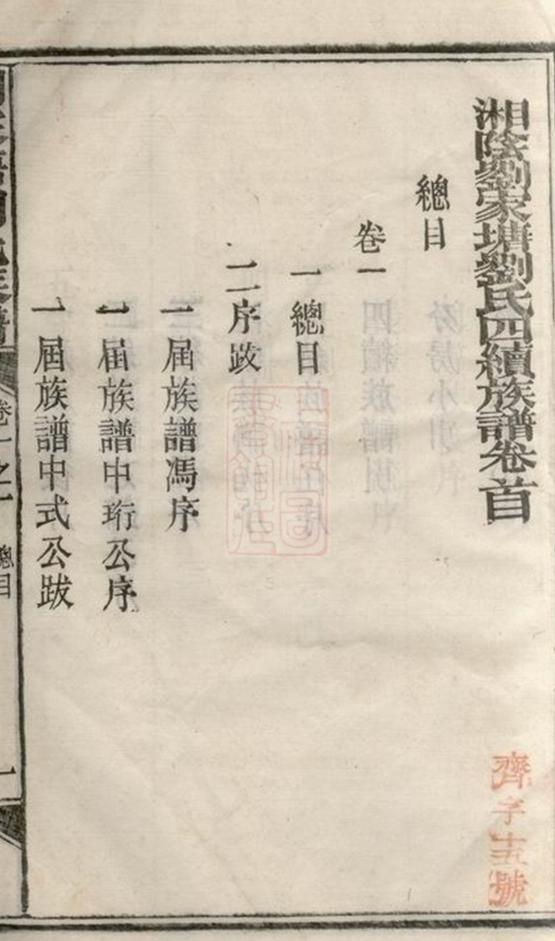 湘陰劉家塘劉氏四續族譜卷首
總目
卷一
一總目
二序跋
一屆族譜馮序
一屆族譜中珩公序
一屆族譜中式公跋
卷一之一
總目
一
齊字十五號